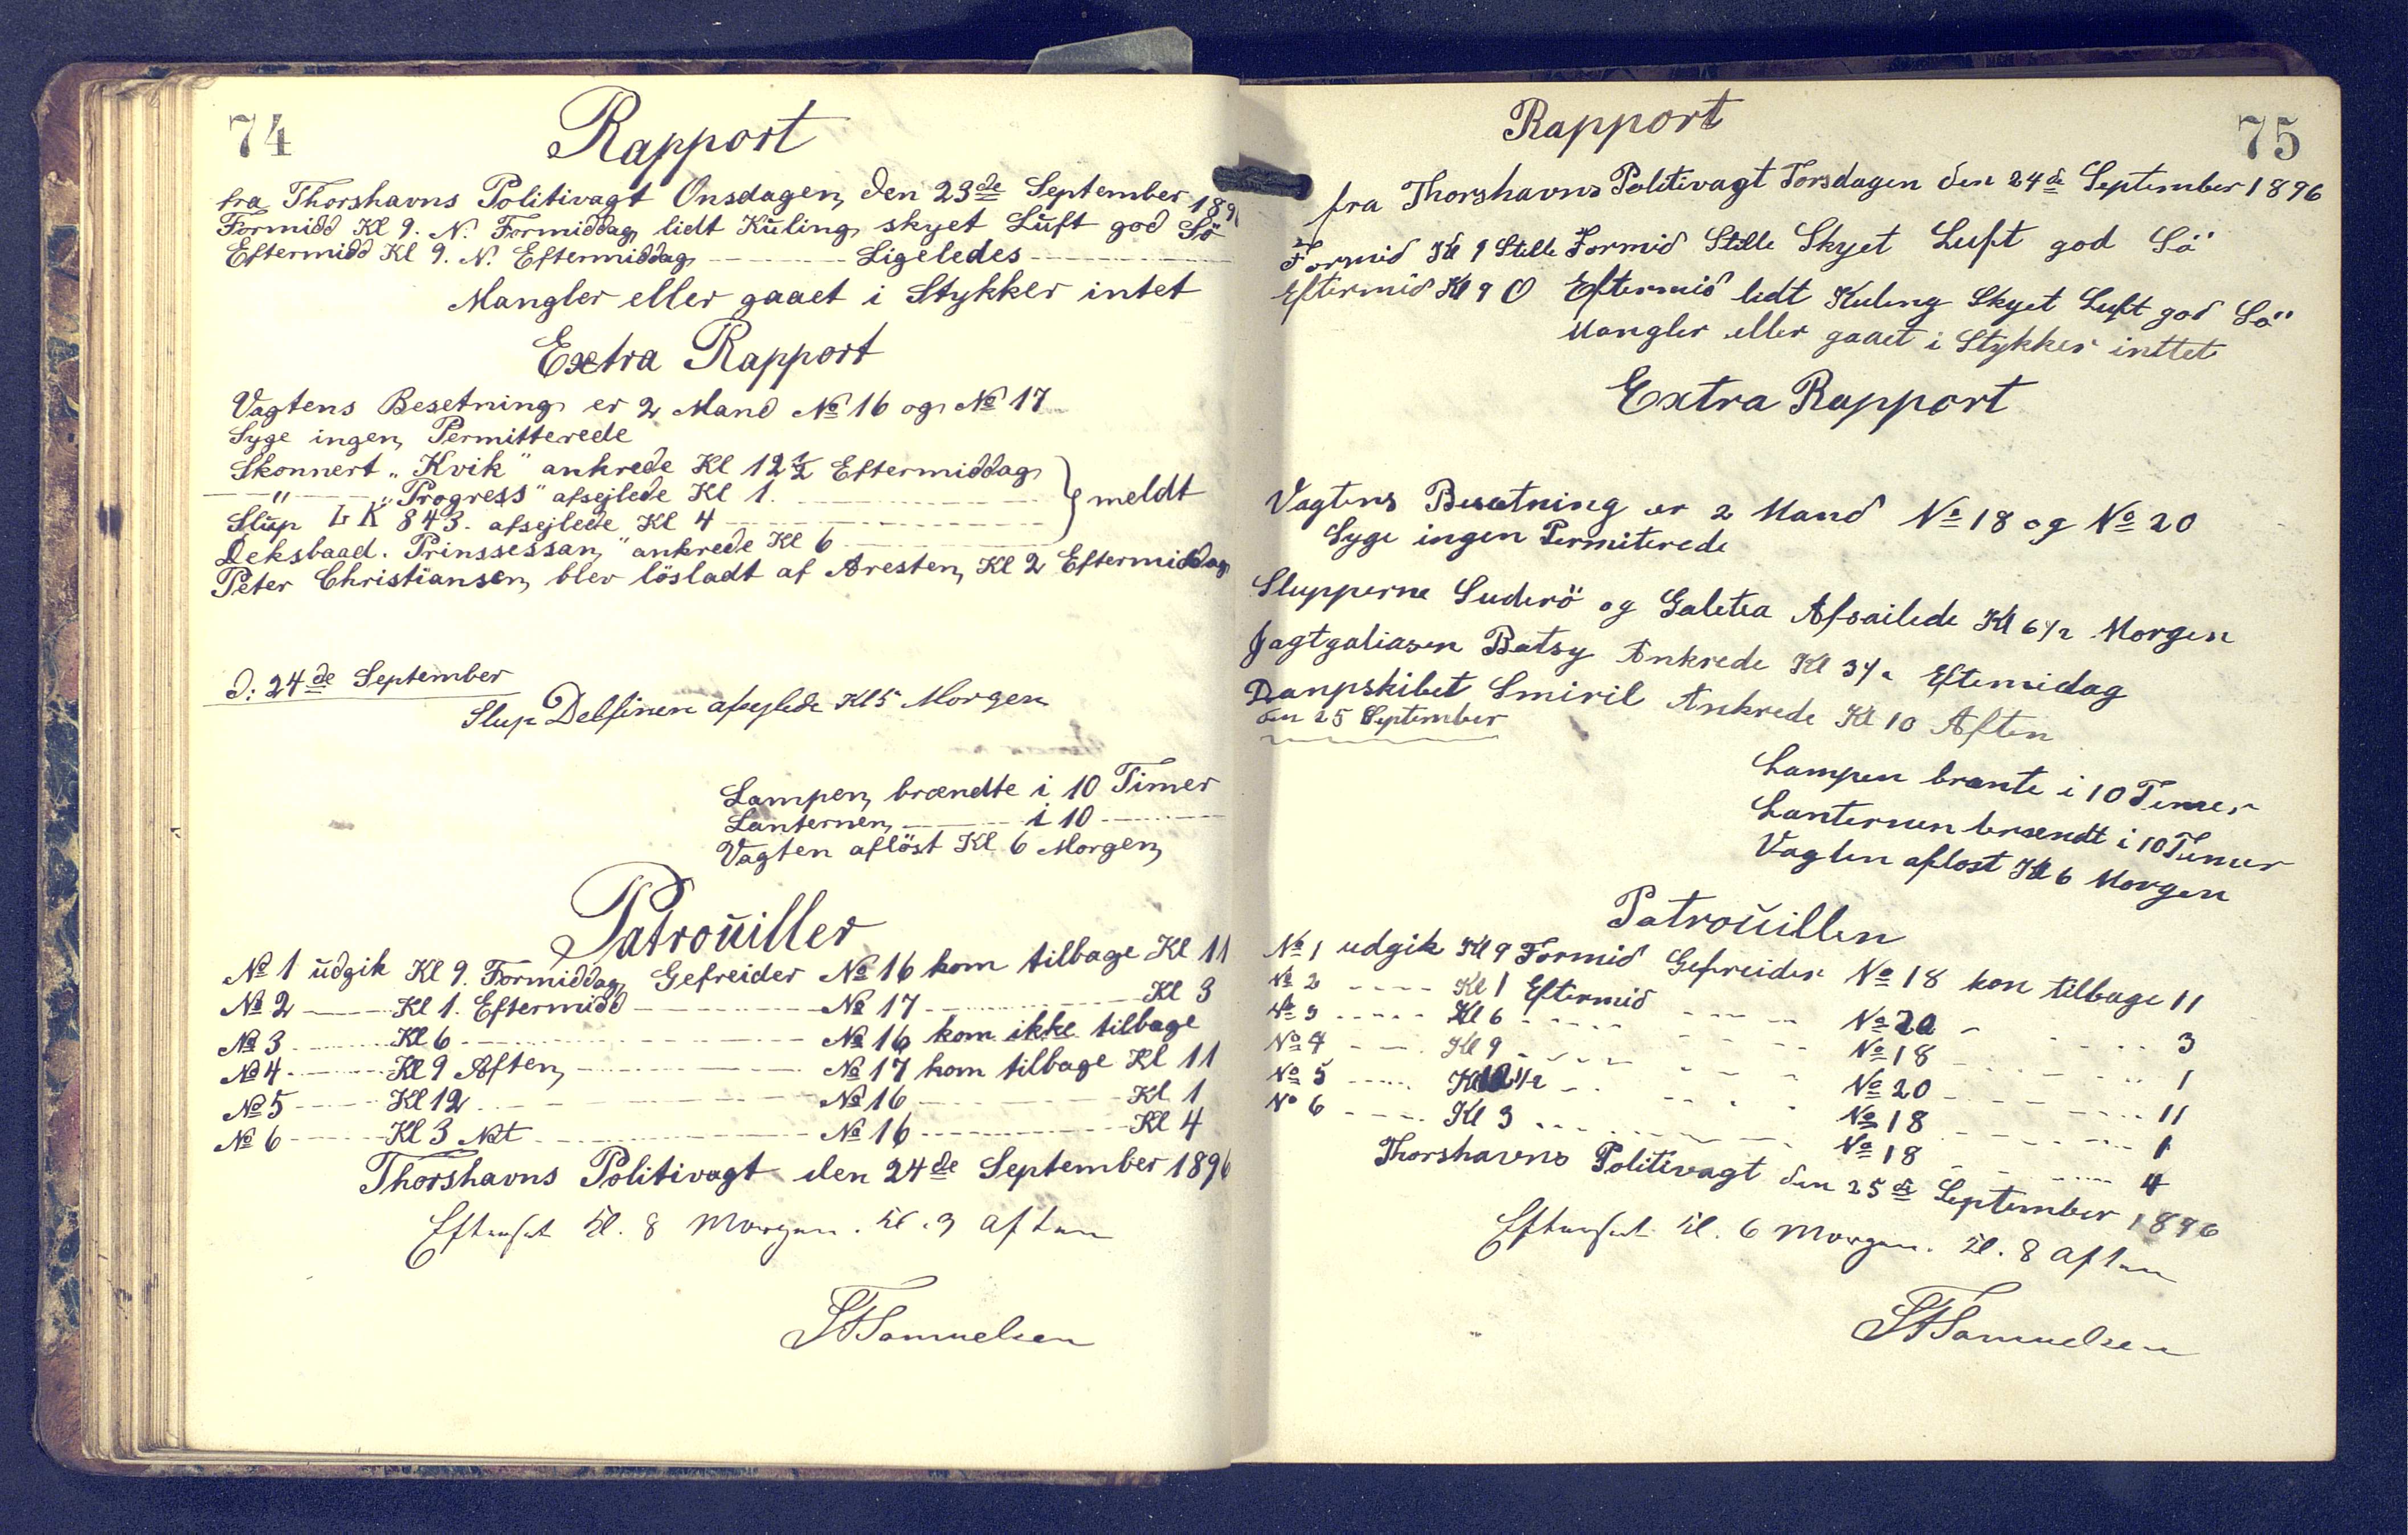 74
Rapport
fra Thorshavns Politivagt Onsdagen den 23de September 189
Formidd Kl 9. N. Formiddag lidt Kuling skyet Luft god Sö
Eftermidd Kl 9. N. Eftermiddag ---- Ligeledes ----
Mangler eller gaaet i Stykker intet
Extra Rapport
Vagtens Besetning er 2 Mand No 16 og No 17
Syge ingen Permitterede
Skonnert „Kvik" ankrede Kl 12½ Eftermiddag
---- " ---- „Progress" afsejlede Kl 1. ---- } meldt
Slup LK 843. afsejlede Kl 4 ----
Deksbaad. Prinssessan" ankrede Kl 6 ----
Peter Christiansen blev lösladt af Aresten Kl 2 Eftermiddag
d: 24de September
Slup Delfinen afsejlede Kl 5 Morgen
Lampen brændte i 10 Timer
Lanternen ---- i 10 ----
Vagten aflöst Kl 6 Morgen
Patrouiller
No 1 udgik Kl 9. Formiddag Gefreider No 16 kom tilbage Kl 11
No 2 ---- Kl 1. Eftermidd ---- No 17 ---- Kl 3
No 3 ---- Kl 6 ---- No 16 kom ikke tilbage
No 4 ---- Kl 9 Aften ---- No 17 kom tilbage Kl 11
No 5 ---- Kl 12 ---- No 16 ---- Kl 1
No 6 ---- Kl 3 Nat ---- No 16 ---- Kl 4
Thorshavns Politivagt den 24de September 1896
Efterset Kl. 8 Morgen. Kl. 9 Aften
Samuelsen
75
Rapport
fra Thorshavns Politivagt Torsdagen den 24de September 1896
Formid Kl 9 Stille Formid Stille Skyet Luft god Sö
Eftermid Kl 9 O Eftermid lidt Kuling Skyet Luft god Sö
Mangler eller gaaet i Stykker inttet
Extra Rapport
Vagtens Besætning er 2 Mand No 18 og No 20
Syge ingen Permiterede
Slupperne Suderö og Galetea Afsailede Kl 6½ Morgen
Jagtgaliasen Batsy Ankrede Kl 3½ Eftemidag
Danpskibet Smiril Ankrede Kl 10 Aften
den 25 September
Lampen brante i 10 Timer
Lanternen brændt i 10 Timer
Vagten aflost Kl 6 Morgen
Patrouillen
No 1 udgik Kl 9 Formid Gefreider No 18 kon tilbage 11
No 2 ---- Kl 1 Eftermid ---- No 20 ---- 3
No 3 ---- Kl 6 ---- No 18 ---- 1
No 4 ---- Kl 9 ---- No 20 ---- 11
No 5 ---- Kl 12½ ---- No 18 ---- 1
No 6 ---- Kl 3 ---- No 18 ---- 4
Thorshavns Politivagt den 25de September 1896
Efterset Kl. 6 Morgen. Kl. 8 Aften
Samuelsen